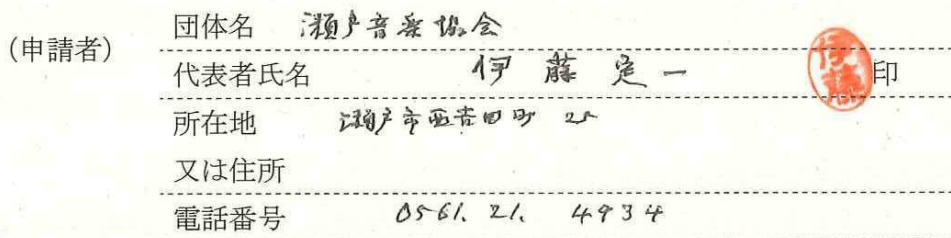 (申請者)
団体名 瀬戸音楽協会
代表者氏名 伊藤定一 伊藤 印
所在地 瀬戸市西吉田町 25
又は住所
電話番号 0561. 21. 4934